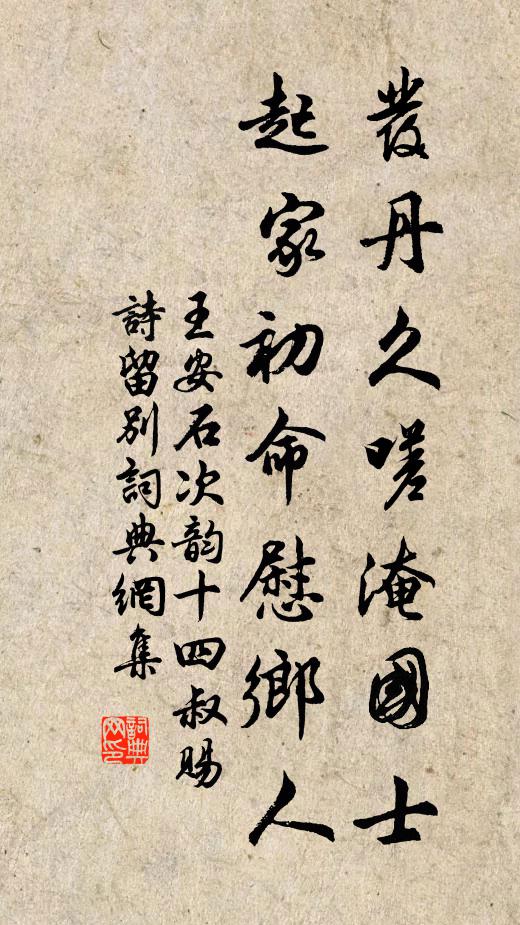 發丹久嗟淹國士
起家初命慰鄉人
王安石次韵十四叔賜
詩留別詞典網集
詞典
网印